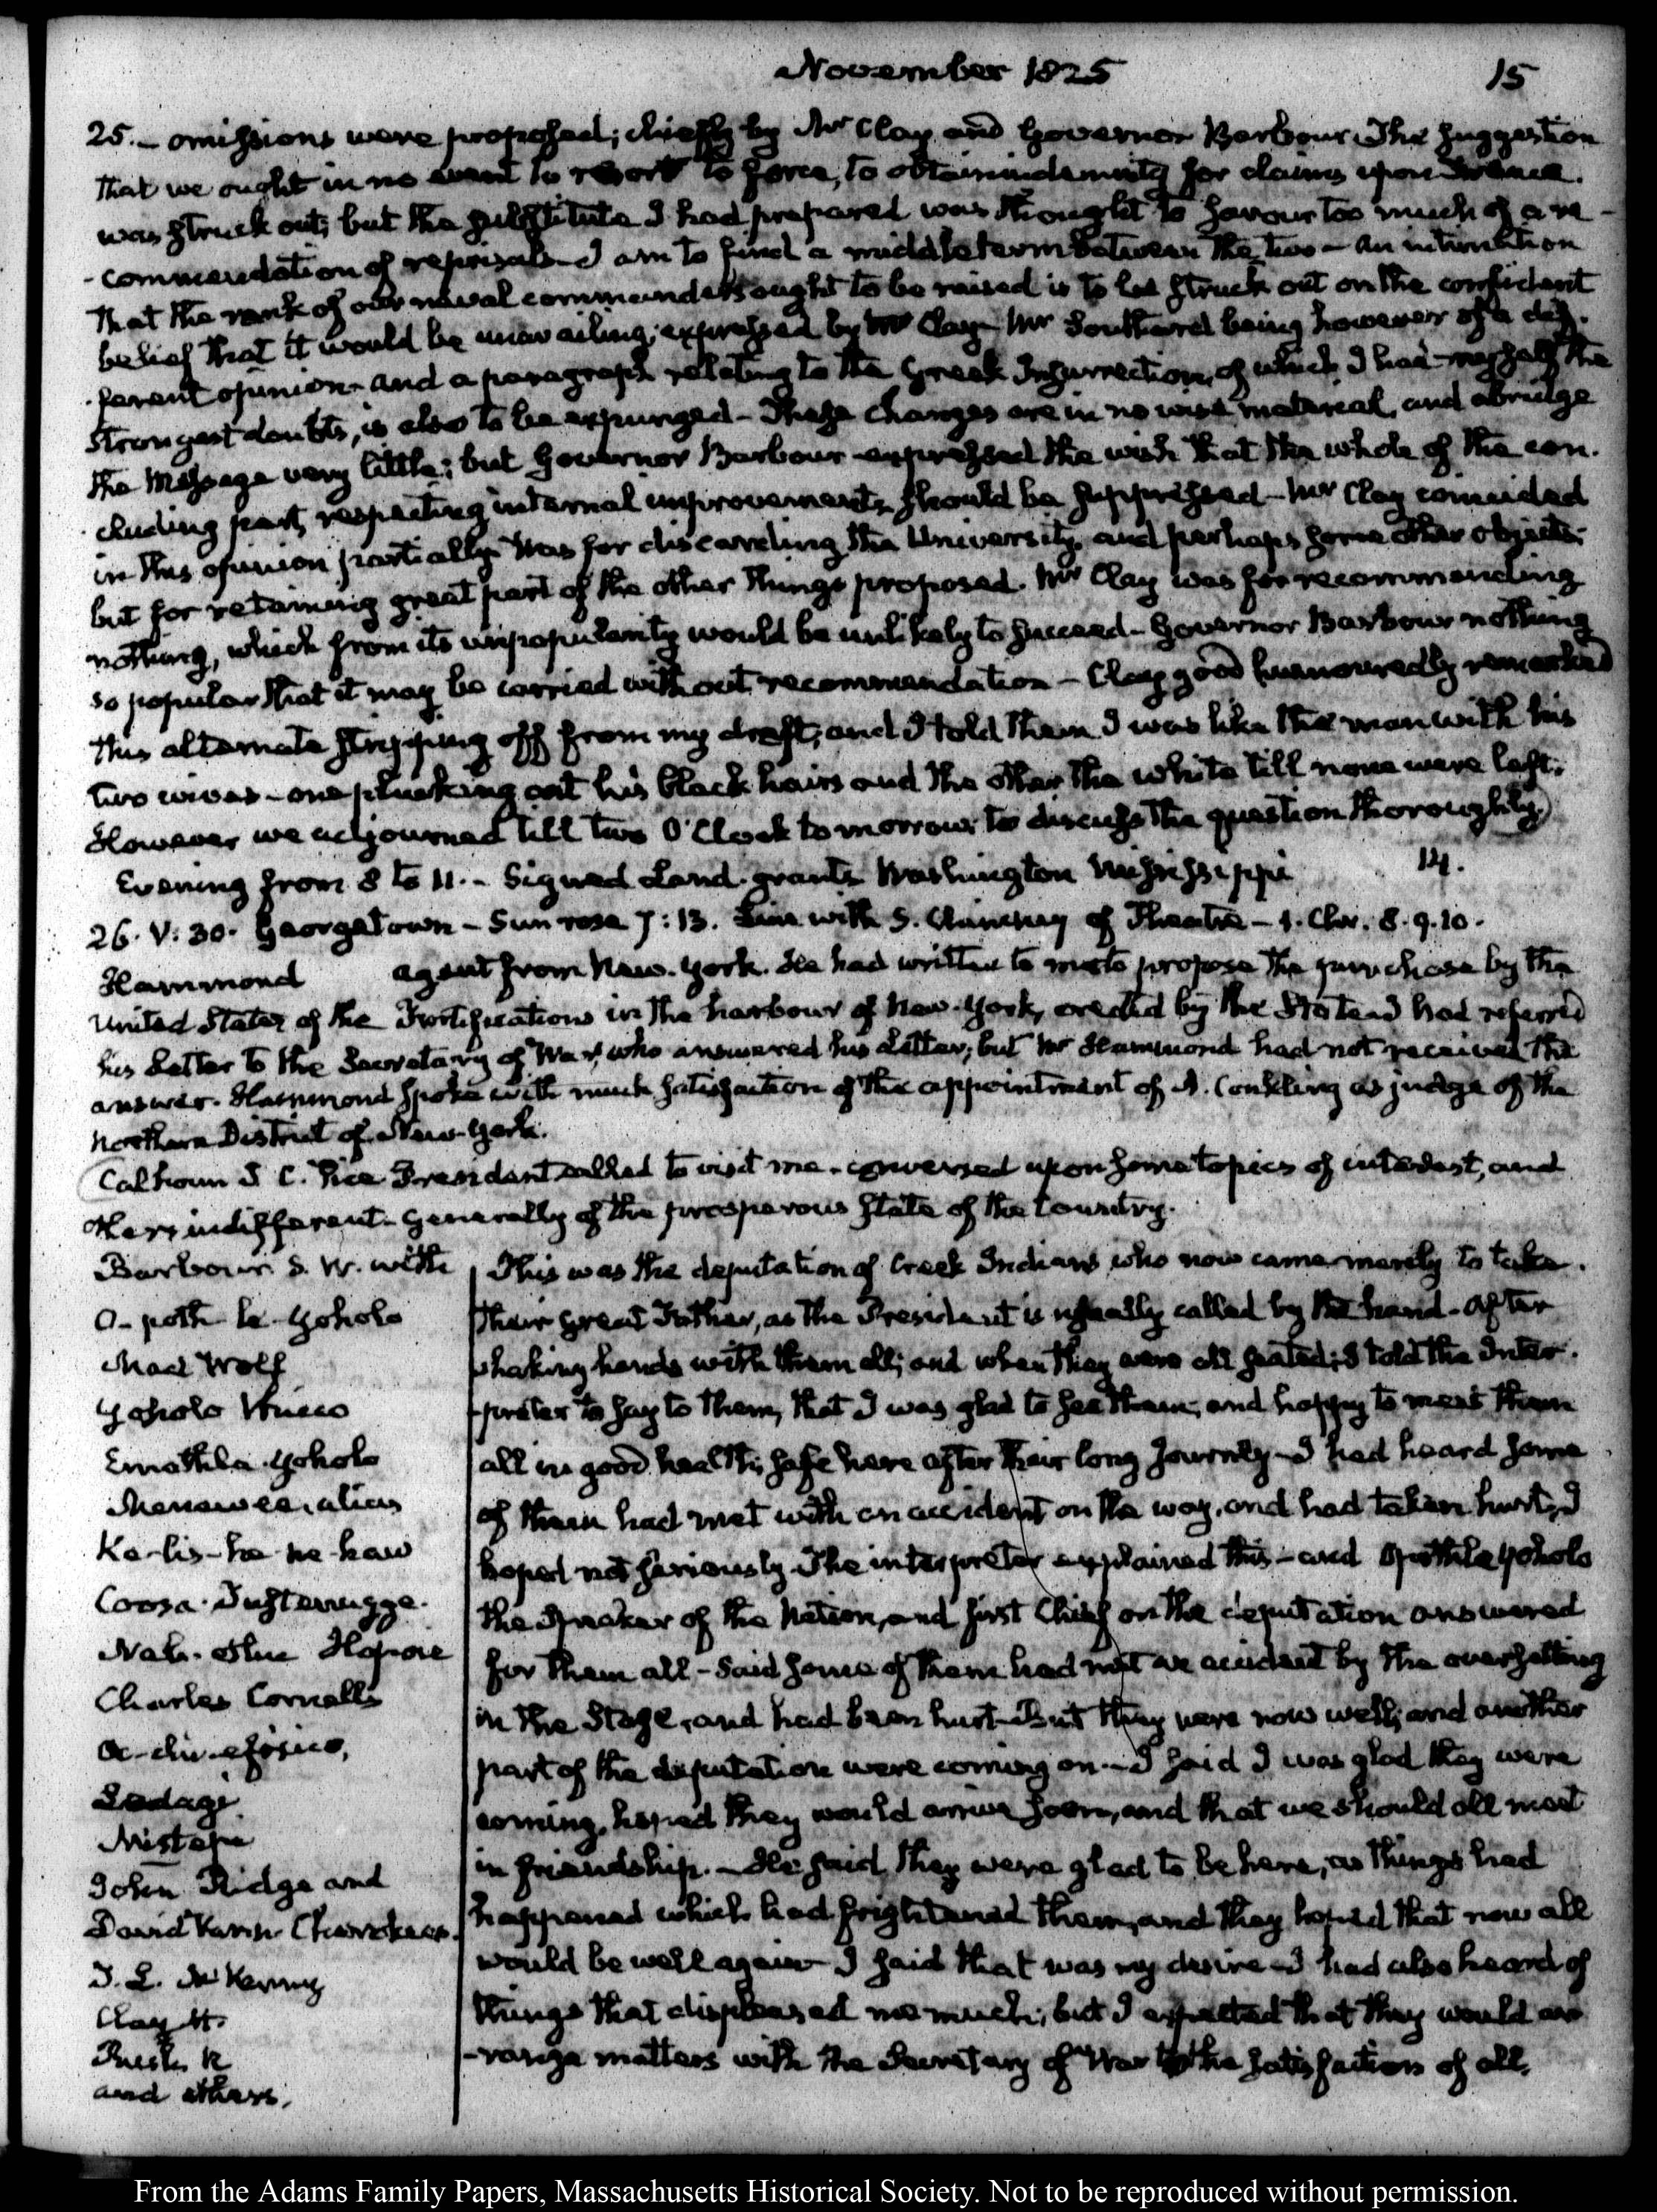 November 1825 15
25. – omissions were proposed; chiefly by Mr Clay and Governor Barbour. The suggestion
that we ought in no event to resort to force, to obtain indemnity for claims upon France.
was struck out; but the substitute I had prepared was thought to savour too much of a re-
-commendation of reprisals – I am to find a middle term between the two – an intimation
that the rank of our naval commanders ought to be raised is to be struck out on the confident
belief that it would be unavailing; expressed by Mr Clay – Mr Southard being however of a dif.
.ferent opinion – and a paragraph relating to the Greek Insurrection, of which I had myself the
strongest doubts, is also to be expunged – These changes are in no wise material, and abridge
the Message very little; but Governor Barbour expressed the wish that the whole of the con.
.cluding part, respecting internal improvements, should be suppressed – Mr Clay coincided
in this opinion partially. Was for discarding the University, and perhaps some other objects;
but for retaining great part of the other things proposed. Mr Clay was for recommending
nothing, which from its unpopularity would be unlikely to succeed – Governor Barbour nothing
so popular that it may be carried without recommendation – Clay good humouredly remarked
this alternate stripping off from my draft; and I told them I was like the man with his
two wives – one plucking out his black hairs and the other the white till none were left.
However we adjourned till two O'Clock tomorrow; to discuss the question thoroughly.
Evening from 8 to 11. – Signed Land-grants Washington Mississippi 14.
26. V: 30. Georgetown – Sun rose 7:13. with S. of Theatre – 1. Chr. 8. 9. 10.
Hammond agent from New-York. He had written to me to propose the purchase by the
United States of the Fortifications in the harbour of New-York, erected by the State I had referred
his Letter to the Secretary of War, who answered his Letter; but Mr Hammond had not received the
answer. Hammond spoke with much satisfaction of the appointment of A. Conkling as judge of the
Northern District of New-York.
Calhoun J C. Vice President called to visit me – conversed upon some topics of interest, and
others indifferent – Generally of the prosperous state of the Country.
Barbour. S. W. with
O-poth-le-Yoholo
Mad Wolf
Yoholo Micco
Emathla Yoholo
Menawee, alias
Ka-lis-ha-ne-haw
Coosa Tustenugge.
Nah. Hopoie
Charles Cornells
Ledagi
Mistepe
John Ridge and
David Vann Cherokees.
T. L. McKenney
Clay H.
Rush R
and others.
This was the deputation of Creek Indians who now came merely to take.
their great Father, as the President is usually called by the hand – After
shaking hands with them all; and when they were all seated; I told the Inter.
-preter to say to them, that I was glad to see them; and happy to meet them
all in good health; safe here after their long journey – I had heard some
of them had met with an accident on the way, and had taken hurt; I
hoped not seriously. The interpreter explained this – and Opothle Yoholo
the Speaker of the Nation, and first Chief on the deputation answered
for them all – Said some of them had met an accident by the oversetting
in the Stage, and had been hurt – But they were now well; and another
part of the deputation were coming on. – I said I was glad they were
coming, hoped they would arrive soon, and that we should all meet
in friendship. – He said they were glad to be here, as things had
happened which had frightened them, and they hoped that now all
would be well again – I said that was my desire – I had also heard of
things that displeased me much; but I expected that they would ar
-range matters with the Secretary of War to the satisfaction of all.
From the Adams Family Papers, Massachusetts Historical Society. Not to be reproduced without permission.